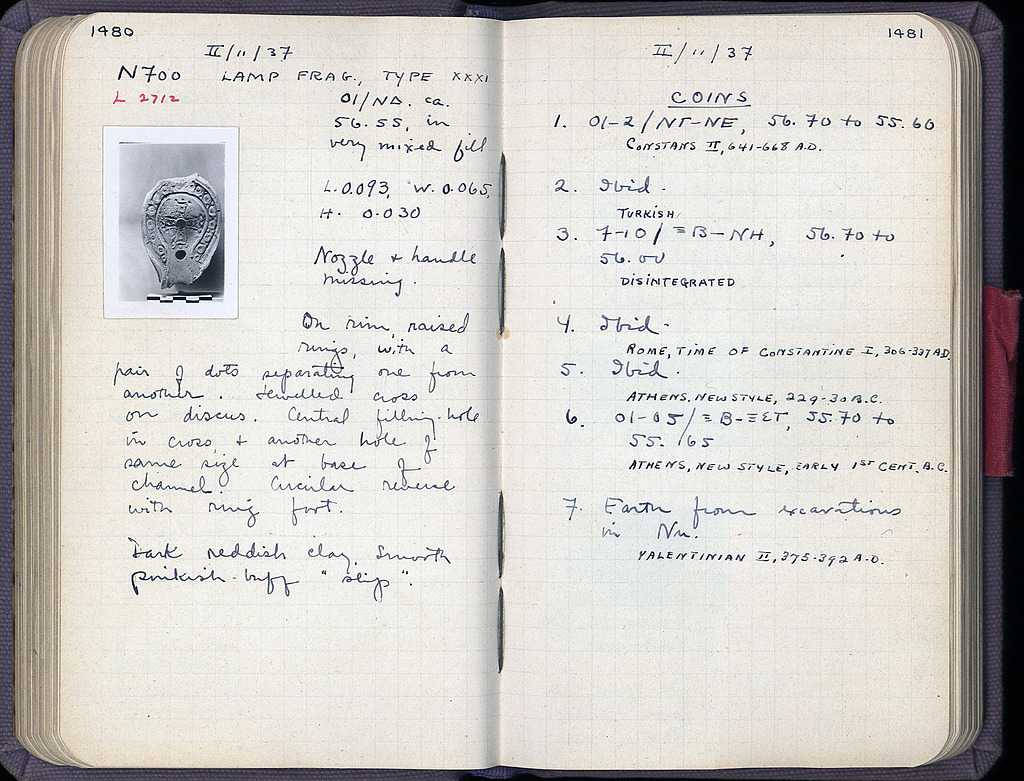 1480
II/11/37
N700 LAMP FRAG., TYPE XXXI
L 2712
01/NΔ. ca.
56.55, in
very mixed fill
L. 0.093, W. 0.065,
H. 0.030
Nozzle + handle
missing.
On rim, raised
rings, with a
pair of dots separating one from
another. Jewelled cross
on discus. Central filling-hole
in cross, + another hole of
same size at base of
channel. Circular reverse
with ring foot.
Dark reddish clay. Smooth
pinkish-buff "slip".
1481
II/11/37
COINS
1. 01-2/NΓ-NE, 56.70 to 55.60
CONSTANS II, 641-668 A.D.
2. Ibid.
TURKISH
3. 7-10/ΞB-NH, 56.70 to
56.00
DISINTEGRATED
4. Ibid.
ROME, TIME OF CONSTANTINE I, 306-337 A.D.
5. Ibid.
ATHENS, NEW STYLE, 229-30 B.C.
6. 01-05/ΞB-ΞΣT, 55.70 to
55.65
ATHENS, NEW STYLE, EARLY 1ST CENT. B.C.
7. Earth from excavations
in Nu.
VALENTINIAN II, 375-392 A.D.